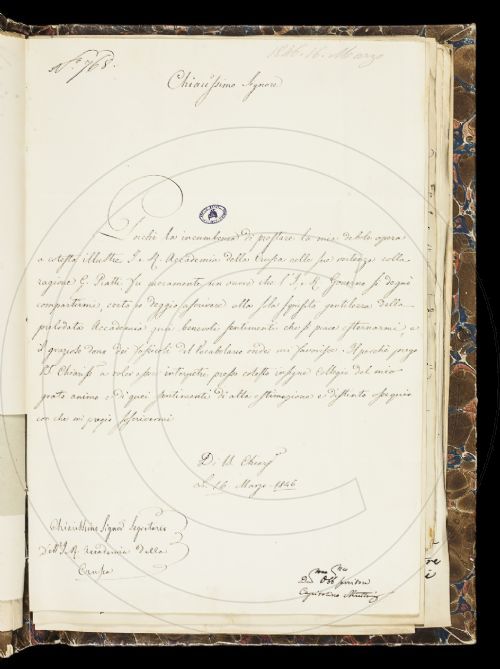 N.° 768.
1846. 16. Marzo
Chiarissimo Signore
Perchè la incumbenza di prestare la mia debole opera
a cotesta illustre I. e R. Accademia della Crusca nelle sue vertenze colla
ragione G. Piatti fu meramente un onore che l'I. e R. Governo si degnò
compartirmi, certo io deggio ascrivere alla sola squisita gentilezza della
prelodata Accademia quei benevoli sentimenti che si piace esternarmi, e
il grazioso dono dei fascicoli del Vocabolario onde mi favorisce. Il perchè prego
VS. Chiariss. a voler essere interprete presso cotesto insigne Collegio del mio
grato animo e di quei sentimenti di alta estimazione e distinto ossequio
con che mi pregio soscrivermi
Di VS. Chiar.
Li 16 Marzo 1846
Chiarissimo Signor Segretario
dell'I. R. Accademia della
Crusca
Dmo Obb Servitore
Capitolino